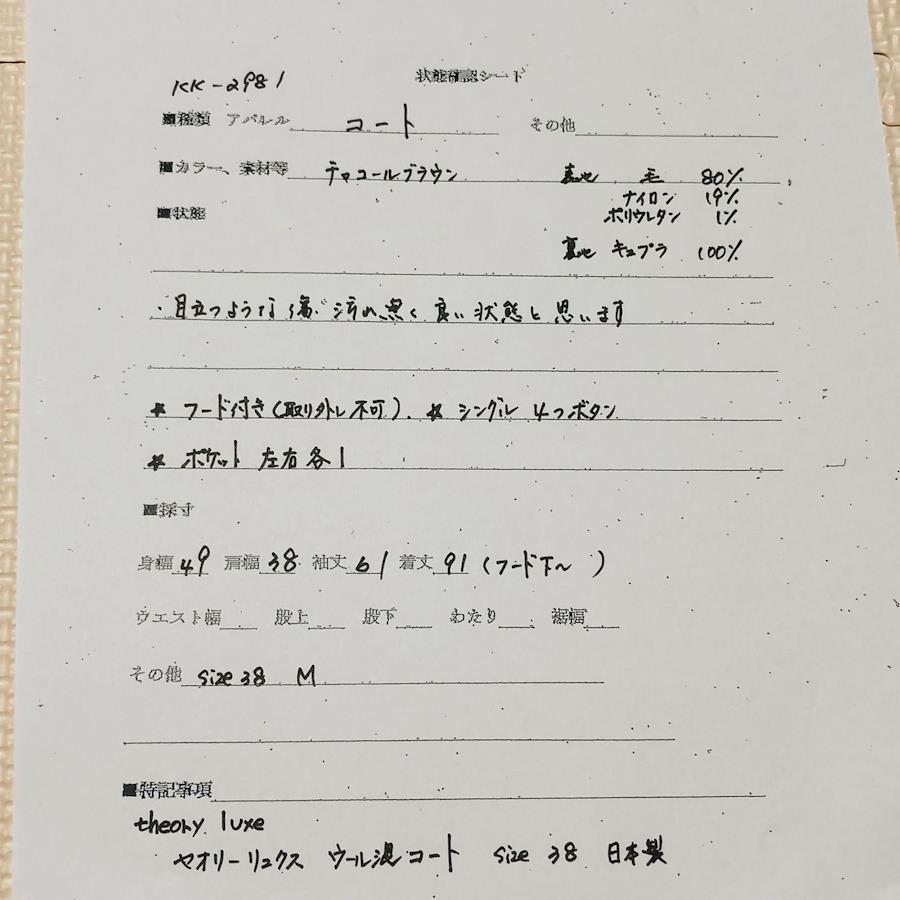 KK-2981
状態確認シート
■種類 アパレル コート その他
■カラー、素材等 チャコールブラウン 表地 毛 80%
ナイロン 19%
ポリウレタン 1%
■状態
裏地 キュプラ 100%
・目立つような傷、汚れ無く良い状態と思います
★ フード付き(取り外し不可). ★ シングル 4つボタン
★ ポケット 左右各1
■採寸
身幅 49 肩幅 38 袖丈 61 着丈 91 (フード下～ )
ウエスト幅 股上 股下 わたり 裾幅
その他 size 38 M
■特記事項
theory luxe
セオリーリュクス ウール混コート size 38 日本製